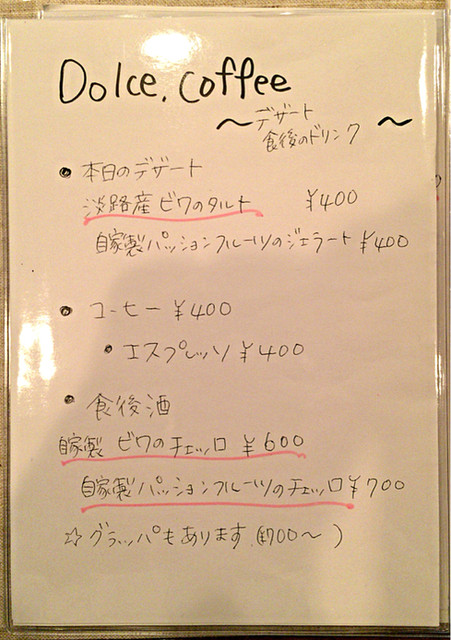 Dolce. Coffee
～デザート
食後のドリンク～
• 本日のデザート
淡路産ビワのタルト ¥400
自家製パッションフルーツのジェラート ¥400
• コーヒー ¥400
• エスプレッソ ¥400
• 食後酒
自家製 ビワのチェッロ ¥600
自家製パッションフルーツのチェッロ ¥700
☆グラッパもあります.(¥700～)